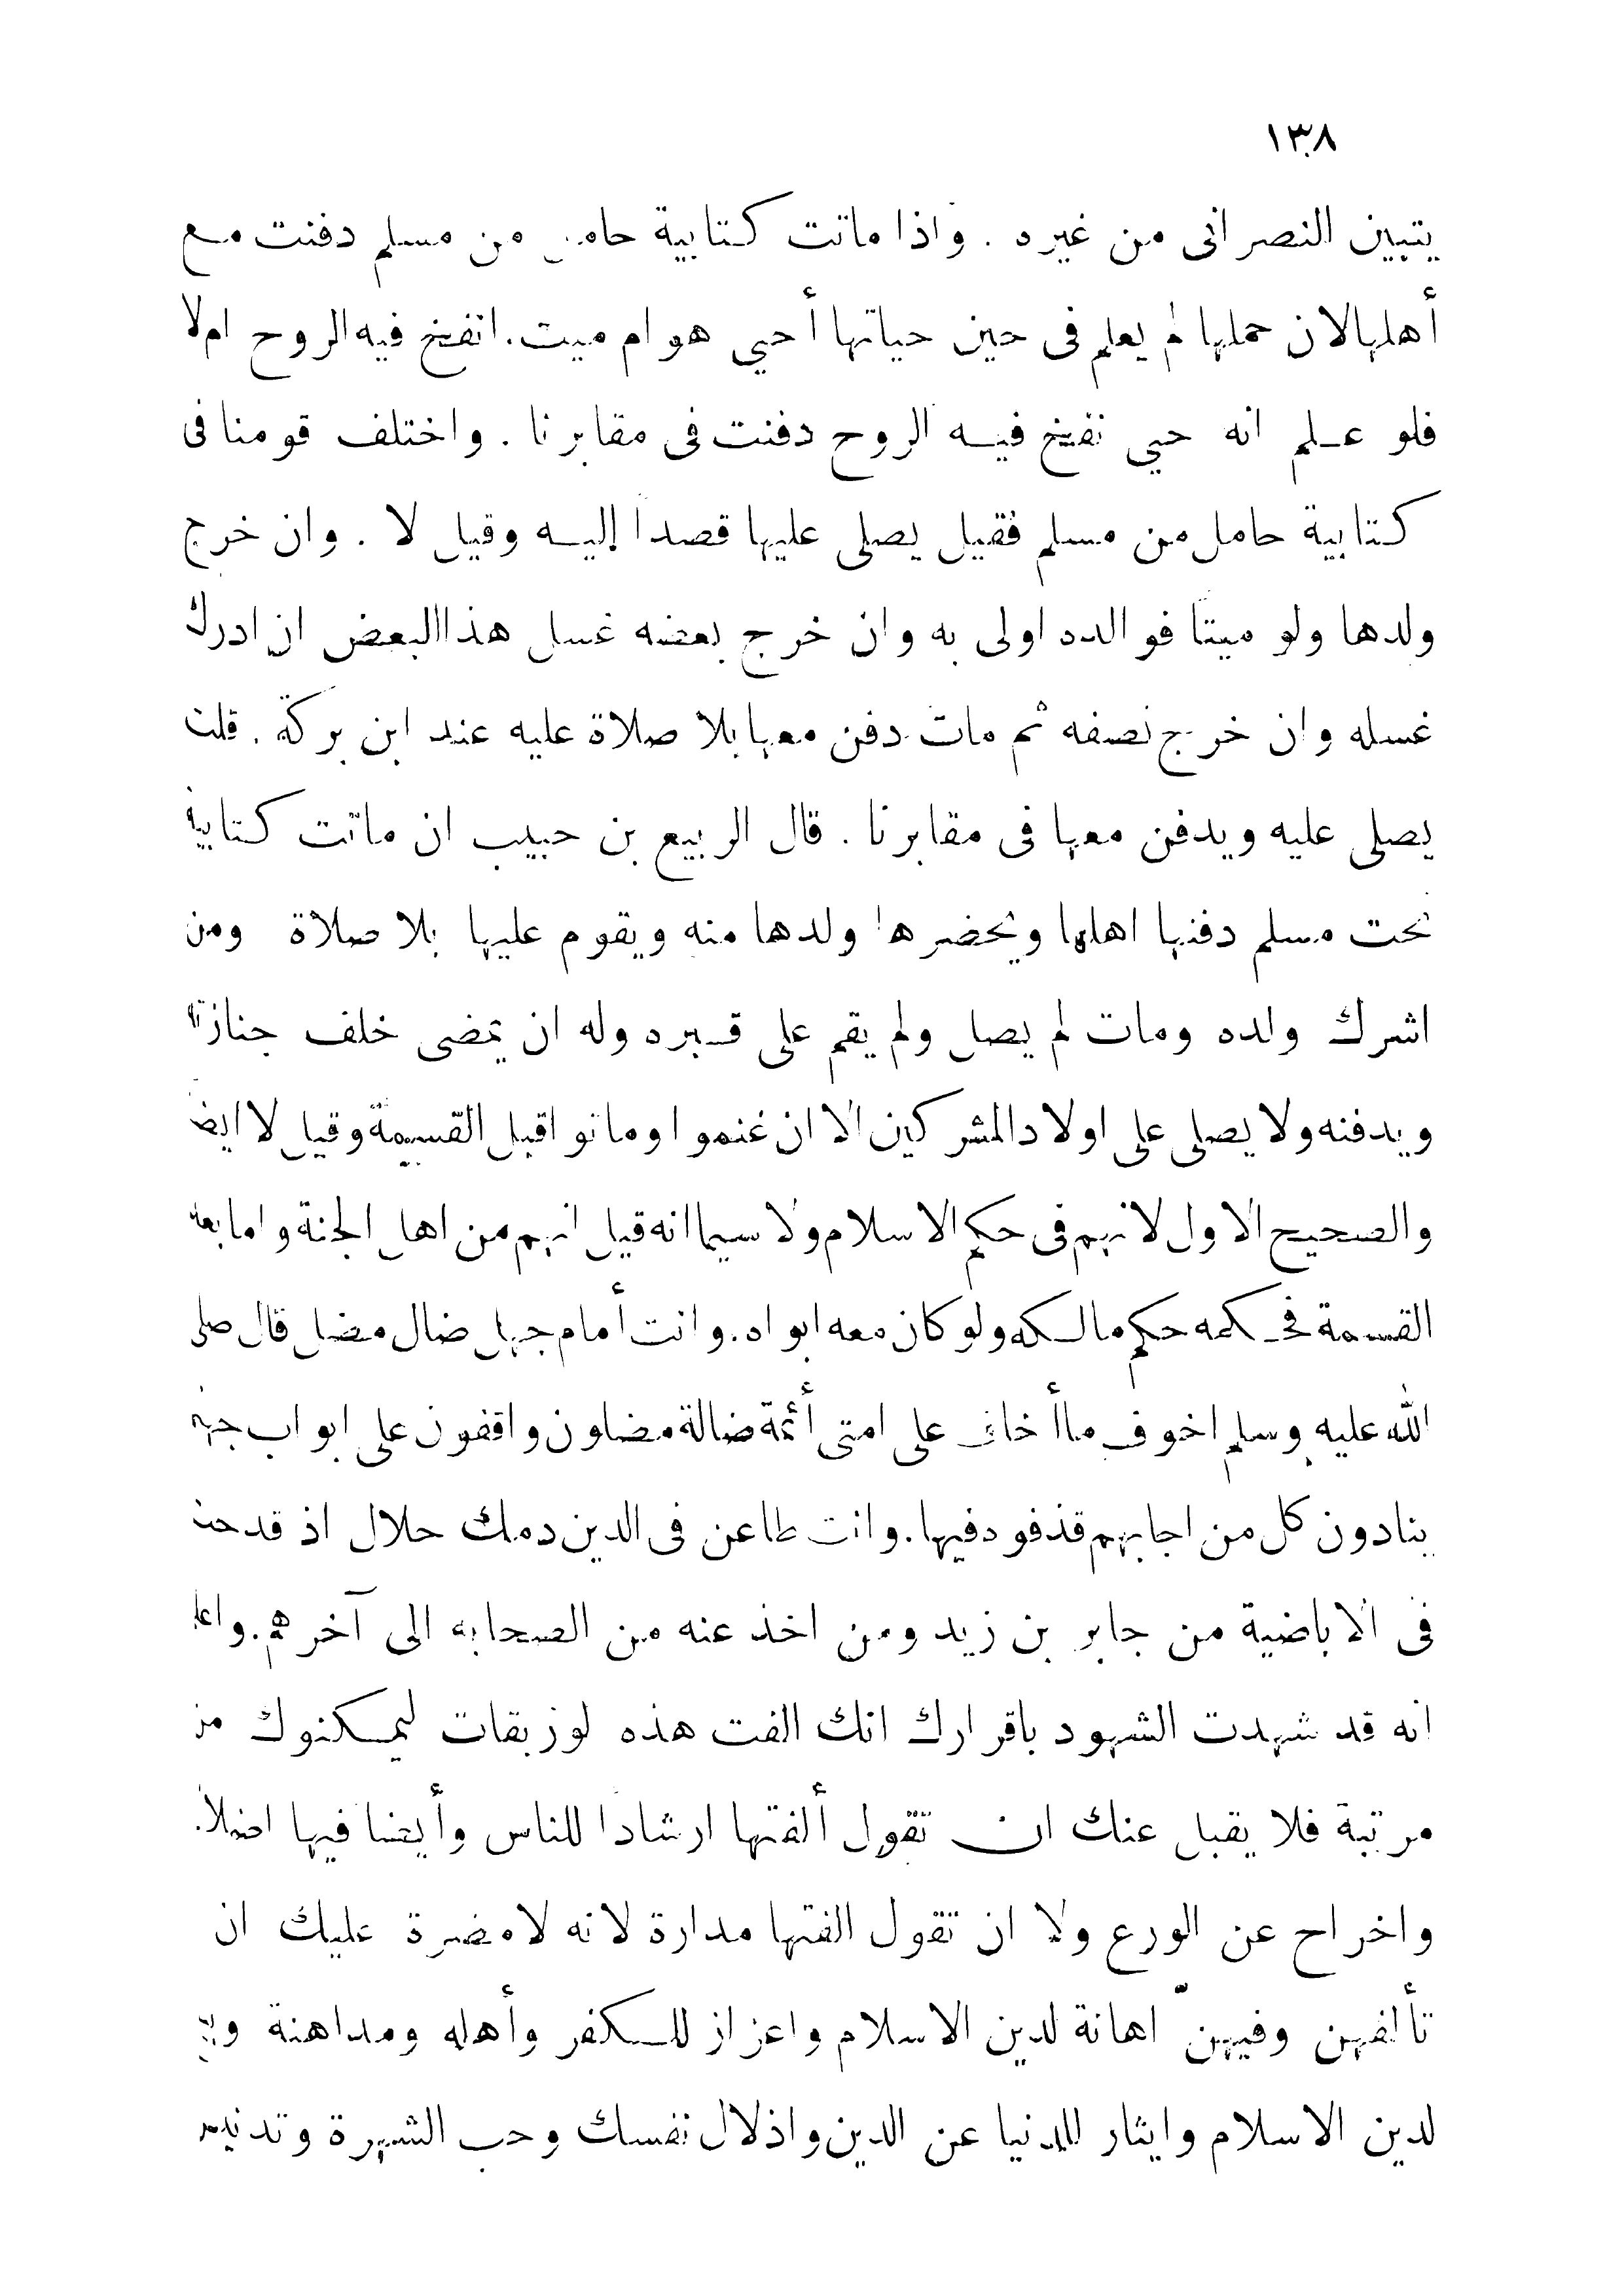 ١٣٨
يتبين النصرانى من غيره . واذا ماتت كتابية حامل من مسلم دفنت مع
أهلها لان حملها لم يعلم فى حين حياتها أحيي هو ام ميت . انفخ فيه الروح ام لا
فلو علم انه حيي نفخ فيه الروح دفنت فى مقابرنا . واختلف قومنا فى
كتابية حامل من مسلم فقيل يصلى عليها قصداً إليه وقيل لا . وان خرج
ولدها ولو ميتا فوالده اولى به وان خرج بعضه غسل هذا البعض ان ادرك
غسله وان خرج نصفه ثم مات دفن معها بلا صلاة عليه عند ابن بركة . قلت
يصلى عليه ويدفن معها فى مقابرنا . قال الربيع بن حبيب ان ماتت كتابية
تحت مسلم دفنها اهلها ويحضرها ولدها منه ويقوم عليها بلا صلاة ومن
اشرك ولده ومات لم يصل ولم يقم على قبره وله ان يمضى خلف جنازته
ويدفنه ولا يصلى على اولاد المشركين الا ان غنموا وماتوا قبل القسمة وقيل لا ايضا
والصحيح الاول لانهم فى حكم الاسلام ولا سيما انه قيل انهم من اهل الجنة واما بعد
القسمة فحكمه حكم مالكه ولو كان معه ابواه . وانت أمام جهل ضال مضل قال صلى
الله عليه وسلم اخوف ما أخاف على امتى أئمة ضالة مضلون واقفون على ابواب جهنم
ينادون كل من اجابهم قذفوه فيها . وانت طاعن فى الدين دمك حلال اذ قدحت
فى الاباضية من جابر بن زيد ومن اخذ عنه من الصحابه الى آخرهم . واعلم
انه قد شهدت الشهود باقرارك انك الفت هذه لوزيقات ليمكنوك من
مرتبة فلا يقبل عنك ان تقول ألفتها ارشادا للناس وأيضا فيها اضلال
واخراج عن الورع ولا ان تقول الفتها مدارة لانه لا مضرة عليك ان
تألفهن وفيهنّ اهانة لدين الاسلام واعزاز للكفر وأهله ومداهنة
لدين الاسلام وايثار للدنيا عن الدين واذلال نفسك وحب الشهرة